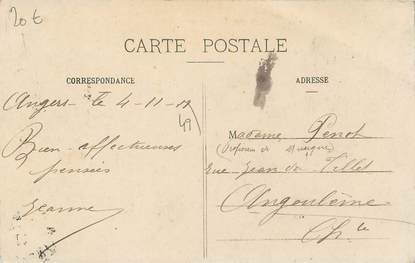 20 €
CARTE POSTALE
CORRESPONDANCE
ADRESSE
Angers le 4-11-
49
Bien affectueuses
pensées
Jeanne
Madame Penot
(Professeur de Musique)
rue Jean du Tillet
Angoulême
Ch te